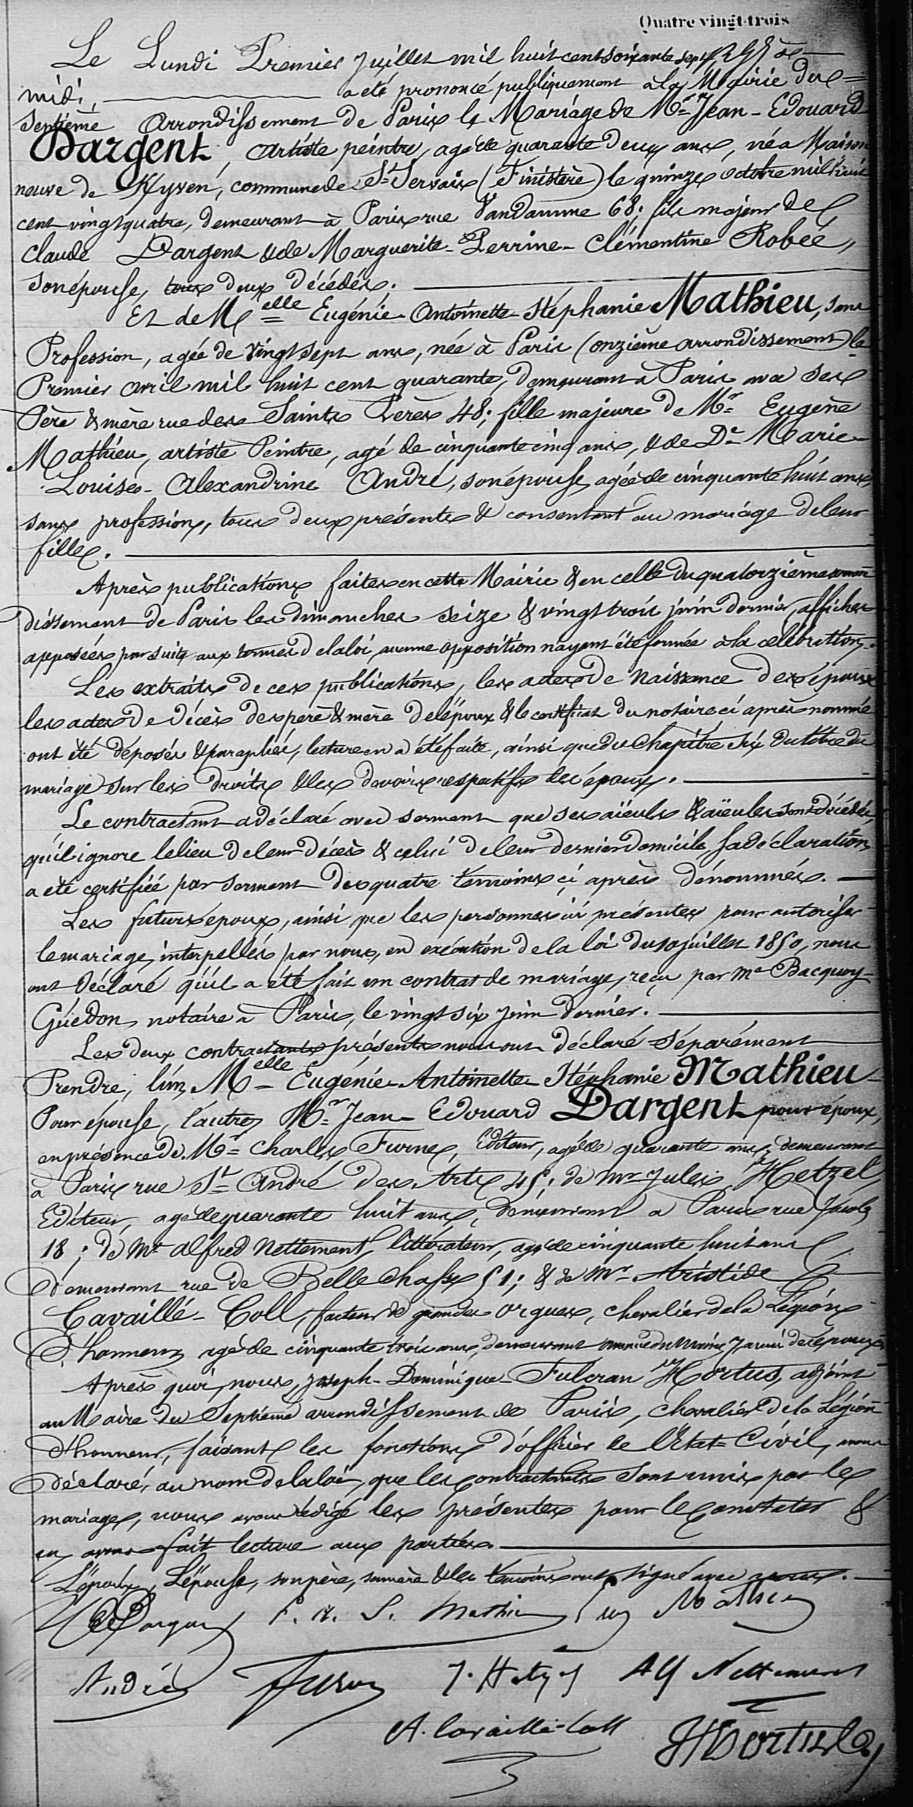 Quatre vingt-trois
Le Lundi Premier Juillet mil huit cent soixante sept à
midi, a été prononcé publiquement à la Mairie du
septième Arrondissement de Paris le Mariage de Mr Jean-Edouard
Dargent, artiste peintre, agé de quarante deux ans, né à Maison
neuve de Kyven, commune de St Servais (Finistère) le quinze octobre mil huit
cent vingt quatre, demeurant à Paris rue Vandamme 68; fils majeur de
Claude Dargent & de Marguerite-Perrine-Clémentine Robée,
son épouse, tous deux décédés.
Et de Melle Eugénie-Antoinette-Stéphanie Mathieu, sans
Profession, agée de vingt sept ans, née à Paris (onzième arrondissement) le
Premier avril mil huit cent quarante, demeurant à Paris avec ses
Père & mère rue des Saints Pères 48; fille majeure de Mr Eugène
Mathieu, artiste Peintre, agé de cinquante cinq ans, & de De Marie-
Louise-Alexandrine André, son épouse, agée de cinquante huit ans,
sans profession, tous deux présents & consentant au mariage de leur
fille.
Après publications faites en cette Mairie & en celle du quatorzième arron
dissement de Paris les dimanches seize & vingt trois juin dernier, affiches
apposées par suite aux termes de la loi, aucune opposition n'ayant été formée à la célébration.
Les extraits de ces publications, les actes de Naissance des époux
les actes de décès des père & mère de l'époux & le certificat du notaire ci après nommé
ont été déposés & paraphés, lecture en a été faite, ainsi que du chapitre six du titre du
mariage sur les droits & les devoirs respectifs des époux.
Le contractant a déclaré avec serment que ses aïeuls & aïeules sont décédés,
qu'il ignore le lieu de leur décès & celui de leur dernier domicile, sa déclaration
a été certifiée par serment des quatre témoins ci après dénommés.
Les futurs époux, ainsi que les personnes ici présentes pour autoriser
le mariage, interpellés par nous, en exécution de la loi du 10 juillet 1850, nous
ont déclaré qu'il a été fait un contrat de mariage, reçu par Me Bacquoy-
Guédon, notaire à Paris, le vingt six juin dernier.
Les deux contractants présents nous ont déclaré séparément
Prendre, l'un, Melle Eugénie-Antoinette-Stéphanie Mathieu
Pour épouse, l'autre, Mr Jean-Edouard Dargent pour époux,
en présence de Mr Charles Furne, Editeur, agé de quarante ans, demeurant
à Paris rue St André des Arts 45; de Mr Jules Hetzel
Editeur, agé de quarante huit ans, demeurant à Paris rue Jacob
18; de Mr Alfred Nettement, littérateur, agé de cinquante huit ans
demeurant rue de Bellechasse 51; & de Mr Aristide
Cavaillé-Coll, facteur de grandes orgues, chevalier de la Légion
d'honneur, agé de cinquante trois ans, demeurant avenue du Maine,
Après quoi, nous, Joseph-Dominique-Fulcran Hortus, adjoint
au Maire du Septième arrondissement de Paris, Chevalier de la Légion
d'honneur, faisant les fonctions d'officier de l'Etat-Civil, avons
déclaré, au nom de la loi, que les contractants sont unis par le
mariage, nous avons rédigé les présentes pour le constater &
en avons fait lecture aux parties.
L'époux, L'épouse, son père, sa mère & les témoins ont signé avec nous.
EDargent E. A. S. Mathieu Eug Mathieu
André Furne J. Hetzel Alf Nettement
A. Cavaillé-Coll
JHortus